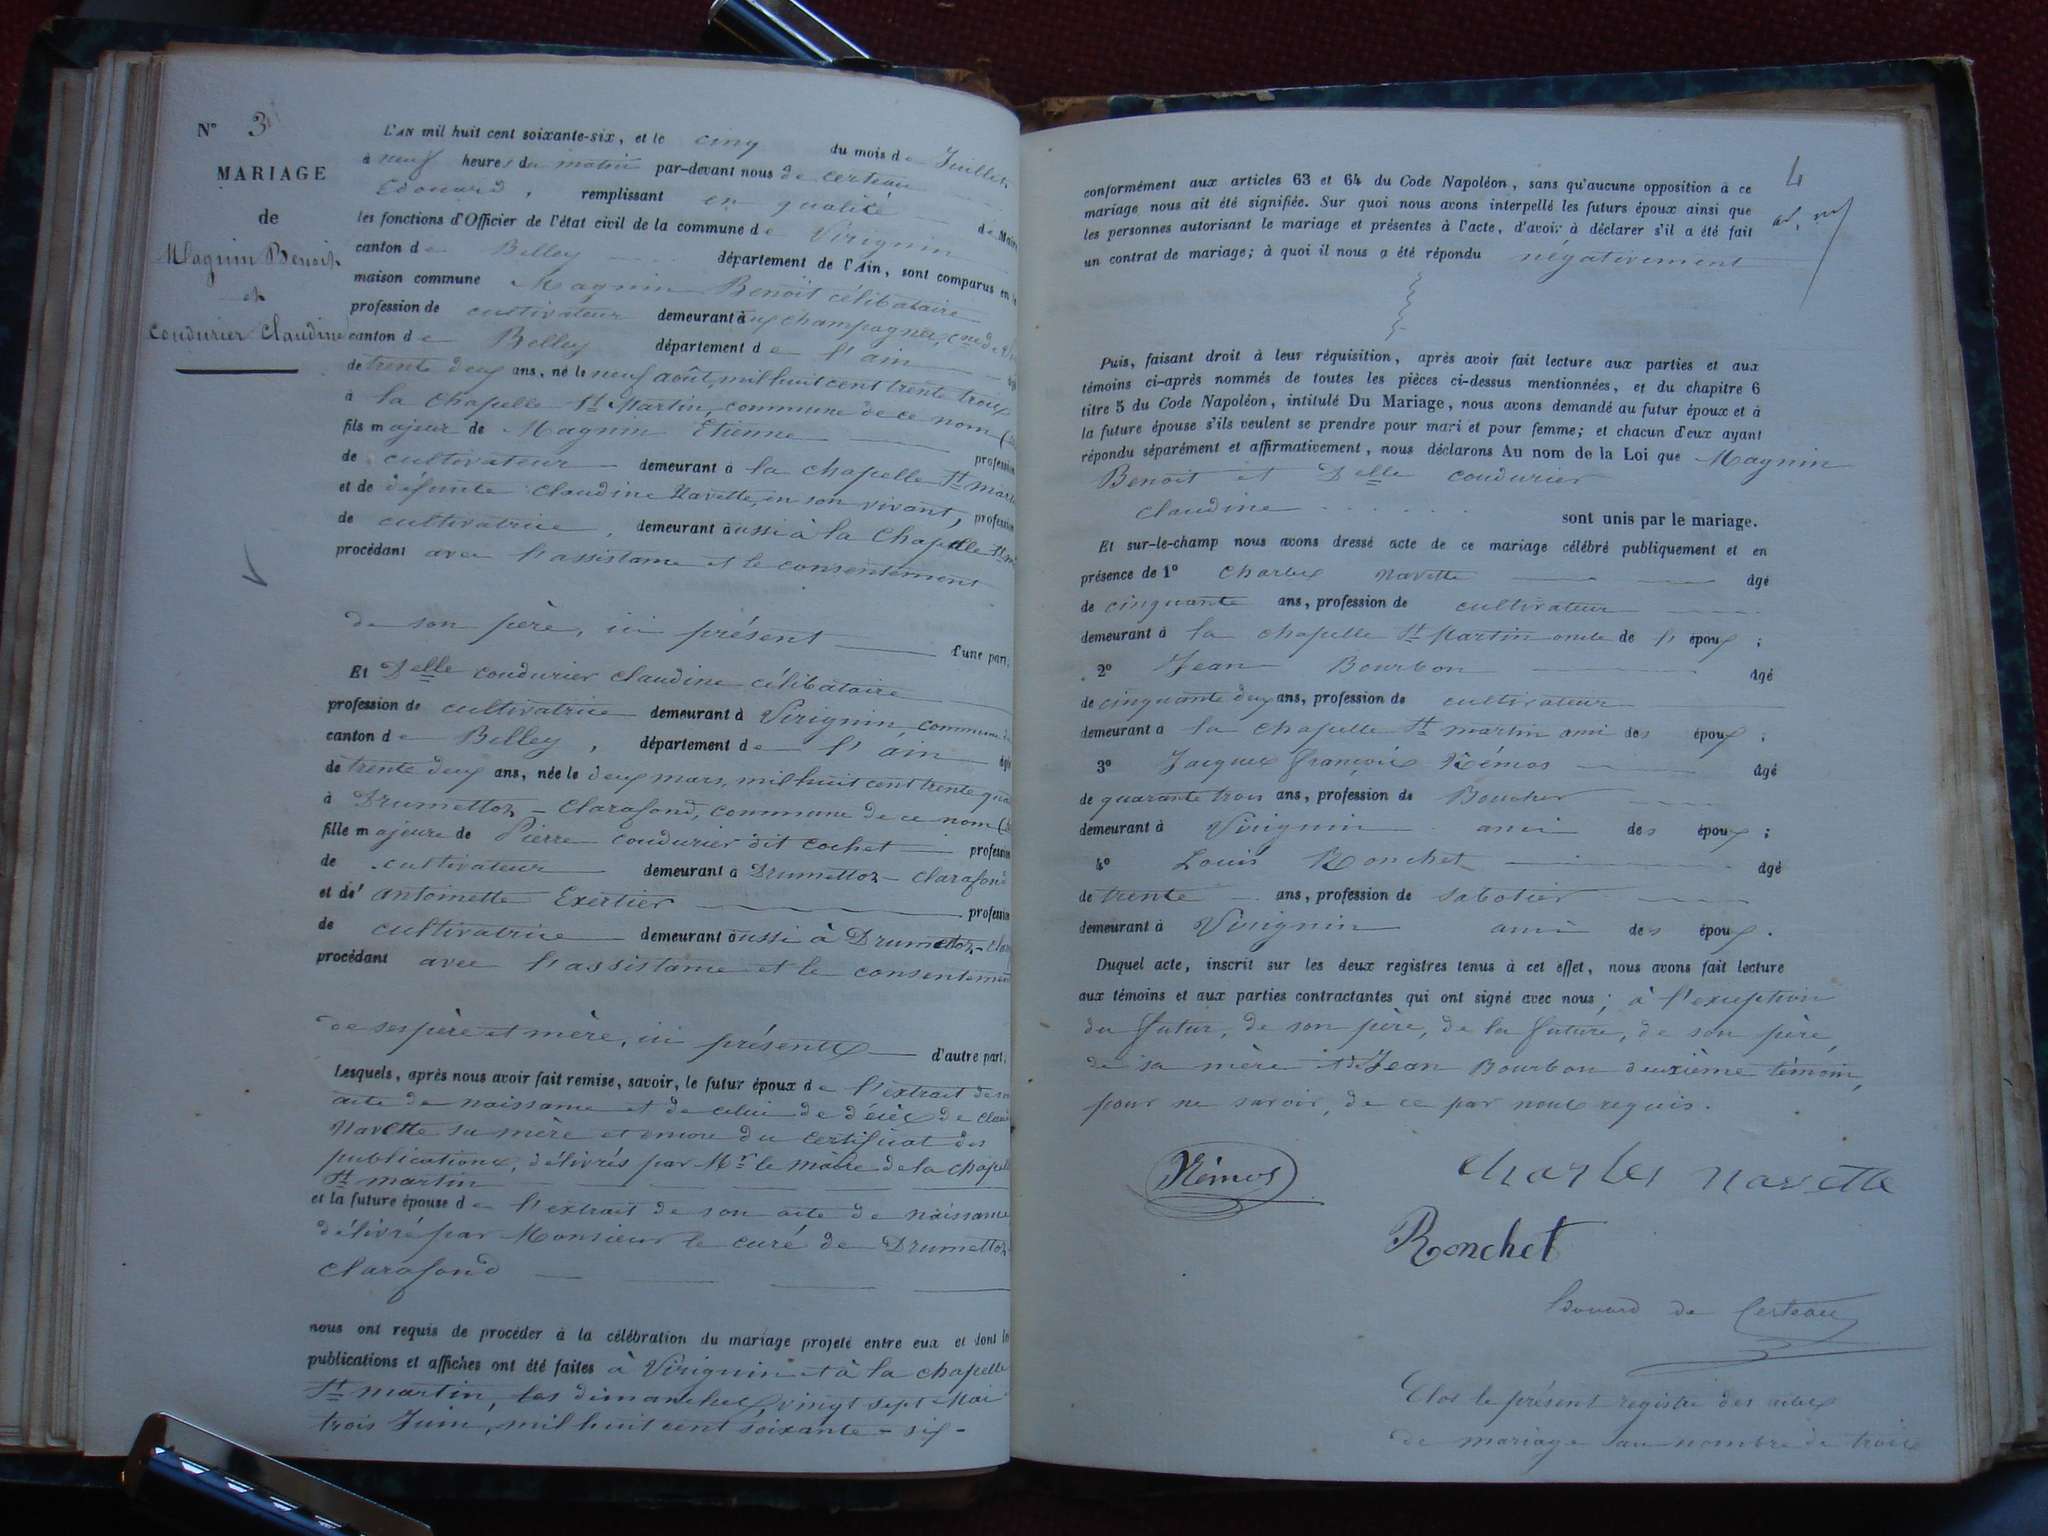 N° 3
MARIAGE
de
Magnin Benoit
et
Coudurier Claudine
L'AN mil huit cent soixante-six, et le cinq du mois de Juillet,
à neuf heures du matin par-devant nous de certeau
Edouard, remplissant en qualité de Maire
les fonctions d'Officier de l'état civil de la commune de Virignin
canton de Belley département de l'Ain, sont comparus en la
maison commune Magnin Benoit célibataire
profession de cultivateur demeurant à
canton de Belley département de l'ain
de trente deux ans, né le neuf août, mil huit cent trente trois
à la chapelle St Martin, commune de ce nom
fils majeur de Magnin Etienne profession
de cultivateur demeurant à la chapelle St
et de défunte Claudine Navette, en son vivant, profession
de cultivatrice, demeurant aussi à la Chapelle St
procédant avec l'assistance et le consentement
de son père, ici présent d'une part,
Et Delle coudurier claudine célibataire
profession de cultivatrice demeurant à Virignin, commune
canton de Belley, département de l'ain
de trente deux ans, née le deux mars, mil huit cent trente
à Drumettoz-Clarafond, commune de ce nom
fille majeure de Pierre coudurier dit cochet profession
de cultivateur demeurant à Drumettoz-Clarafond
et de antoinette Exertier profession
de cultivatrice demeurant aussi à Drumettoz-
procédant avec l'assistance et le consentement
de ses père et mère, ici présents d'autre part,
Lesquels, après nous avoir fait remise, savoir, le futur époux de l'extrait de son
acte de naissance et de celui de décès de
Navette sa mère et encore du certificat des
publications, délivrés par Mr le maire de la chapelle
St martin
et la future épouse de l'extrait de son acte de naissance
délivré par Monsieur le curé de Drumettoz
Clarafond
nous ont requis de procéder à la célébration du mariage projeté entre eux et dont les
publications et affiches ont été faites à Virignin et à la chapelle
St martin, les dimanches, vingt sept Mai
trois Juin, mil huit cent soixante-six-
4
conformément aux articles 63 et 64 du Code Napoléon, sans qu'aucune opposition à ce
mariage nous ait été signifiée. Sur quoi nous avons interpellé les futurs époux ainsi que
les personnes autorisant le mariage et présentes à l'acte, d'avoir à déclarer s'il a été fait
un contrat de mariage; à quoi il nous a été répondu négativement
Puis, faisant droit à leur réquisition, après avoir fait lecture aux parties et aux
témoins ci-après nommés de toutes les pièces ci-dessus mentionnées, et du chapitre 6
titre 5 du Code Napoléon, intitulé Du Mariage, nous avons demandé au futur époux et à
la future épouse s'ils veulent se prendre pour mari et pour femme; et chacun d'eux ayant
répondu séparément et affirmativement, nous déclarons Au nom de la Loi que Magnin
Benoit et Delle coudurier
claudine sont unis par le mariage.
Et sur-le-champ nous avons dressé acte de ce mariage célébré publiquement et en
présence de 1° Charles Navette âgé
de cinquante ans, profession de cultivateur
demeurant à la chapelle St Martin oncle de l'époux;
2° Jean Bourbon âgé
de cinquante deux ans, profession de cultivateur
demeurant à la chapelle St martin ami des époux;
3° Jacques françois Némos âgé
de quarante trois ans, profession de Boucher
demeurant à Virignin ami des époux;
4° Louis Ronchet âgé
de trente ans, profession de sabotier
demeurant à Virignin ami des époux.
Duquel acte, inscrit sur les deux registres tenus à cet effet, nous avons fait lecture
aux témoins et aux parties contractantes qui ont signé avec nous; à l'exception
du futur, de son père, de la future, de son père,
de sa mère et de Jean Bourbon deuxième témoin,
pour ne savoir, de ce par nous requis.
Némos
Charles Navette
Ronchet
Edouard de Certeau
Clos le présent registre des actes
de mariage au nombre de trois